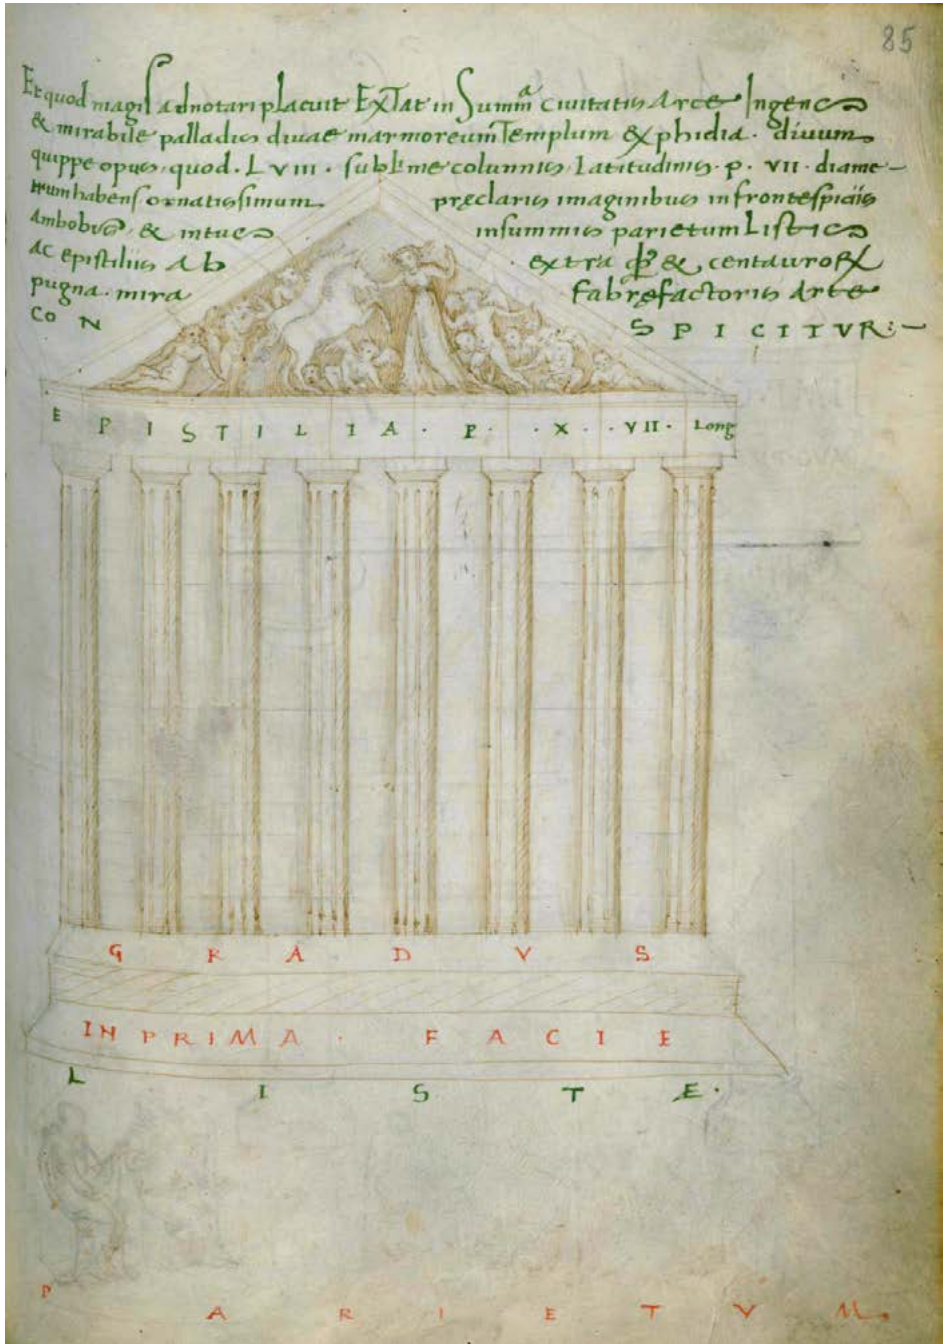 85
Et quod magis adnotari placuit ExTat in Summa ciuitatis Arce Ingens
& mirabile palladis diuae marmoreum Templum & phidia · diuum
quippe opus · quod · L VIII · sublime columnis Latitudinis · p · VII · diame-
trum habens ornatissimum pręclaris imaginibus in frontespiciis
Ambobus & intus in summis parietum Listis
Ac epistiliis Ab extra & centauror
pugna · mira fabrefactoris Arte
CON SPICITVR:-
EPISTILIA · P · X · VII · Long
GRADVS
IN PRIMA · FACIE
LISTÆ ·
PARIETVM